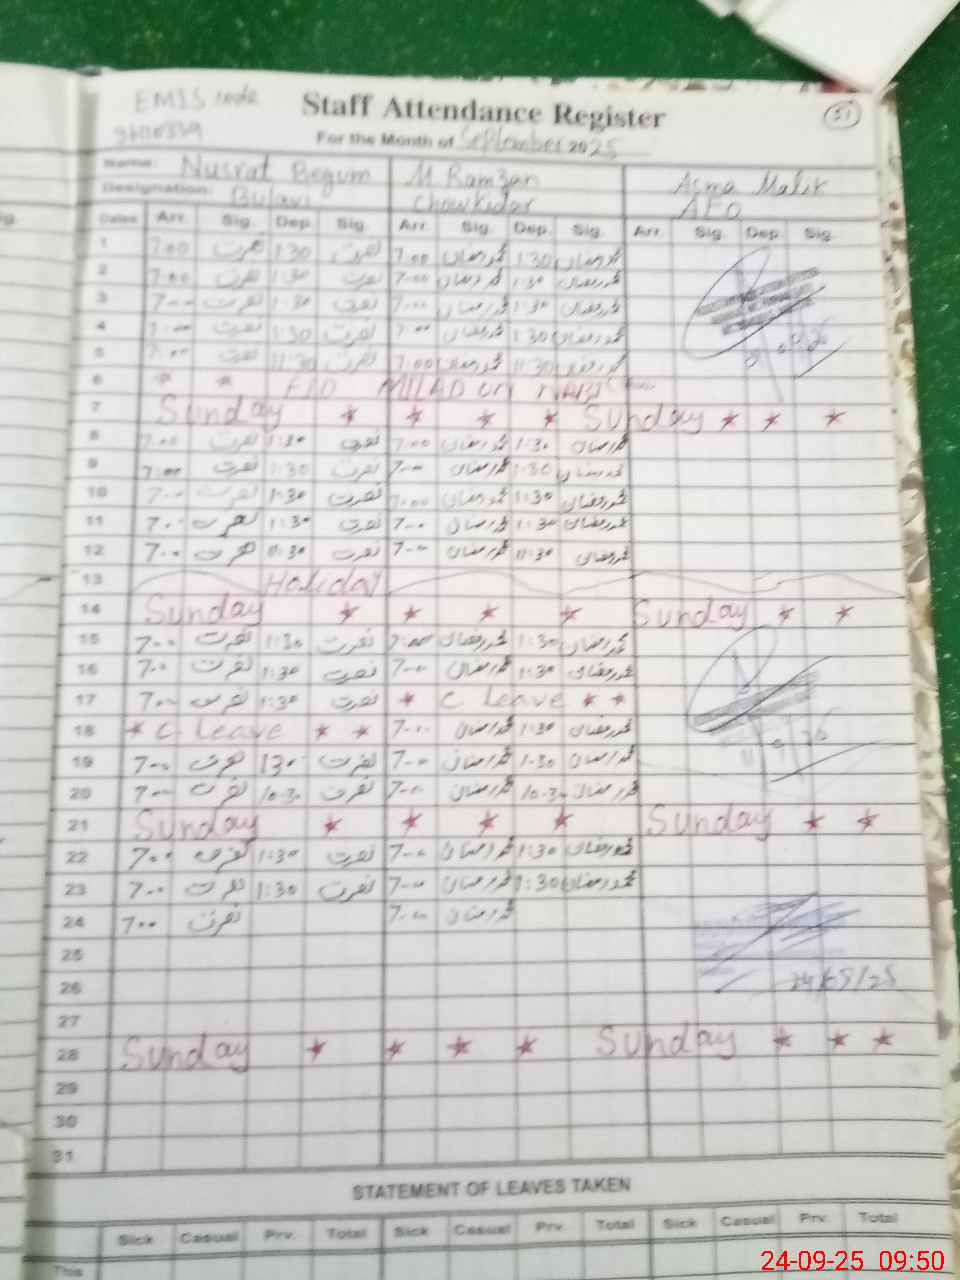 EMIS code
Staff Attendance Register
51
For the Month of September 2025
Name: Nusrat Begum M Ramzan Asma Malik
Designation: Bulavi Chowkidar AEO
Dates Arr. Sig. Dep. Sig. Arr. Sig. Dep. Sig. Arr. Sig. Dep. Sig.
1 7:00 نصرت 1:30 نصرت 7:00 محمد رمضان 1:30 محمد رمضان
2 7:00 نصرت 1:30 نصرت 7:00 محمد رمضان 1:30 محمد رمضان
3 7:00 نصرت 1:30 نصرت 7:00 محمد رمضان 1:30 محمد رمضان
4 7:00 نصرت 1:30 نصرت 7:00 محمد رمضان 1:30 محمد رمضان
5 7:00 نصرت 11:30 نصرت 7:00 محمد رمضان 11:30 محمد رمضان
6 * * EID MILAD UN NABI
7 Sunday * * * * Sunday * * *
8 7:00 نصرت 1:30 نصرت 7:00 محمد رمضان 1:30 محمد رمضان
9 7:00 نصرت 1:30 نصرت 7:00 محمد رمضان 1:30 محمد رمضان
10 7:00 نصرت 1:30 نصرت 7:00 محمد رمضان 1:30 محمد رمضان
11 7:00 نصرت 1:30 نصرت 7:00 محمد رمضان 1:30 محمد رمضان
12 7:00 نصرت 11:30 نصرت 7:00 محمد رمضان 11:30 محمد رمضان
13 Holiday
14 Sunday * * * * Sunday * *
15 7:00 نصرت 1:30 نصرت 7:00 محمد رمضان 1:30 محمد رمضان
16 7:00 نصرت 1:30 نصرت 7:00 محمد رمضان 1:30 محمد رمضان
17 7:00 نصرت 1:30 نصرت * C Leave * *
18 * C Leave * * 7:00 محمد رمضان 1:30 محمد رمضان
19 7:00 نصرت 1:30 نصرت 7:00 محمد رمضان 1:30 محمد رمضان
20 7:00 نصرت 10:30 نصرت 7:00 محمد رمضان 10:30 محمد رمضان
21 Sunday * * * * Sunday * *
22 7:00 نصرت 1:30 نصرت 7:00 محمد رمضان 1:30 محمد رمضان
23 7:00 نصرت 1:30 نصرت 7:00 محمد رمضان 1:30 محمد رمضان
24 7:00 نصرت 7:00 محمد رمضان
25
26 24/09/25
27
28 Sunday * * * * Sunday * * *
29
30
31
STATEMENT OF LEAVES TAKEN
Sick Casual Prv. Total Sick Casual Prv. Total Sick Casual Prv. Total
This
24-09-25 09:50